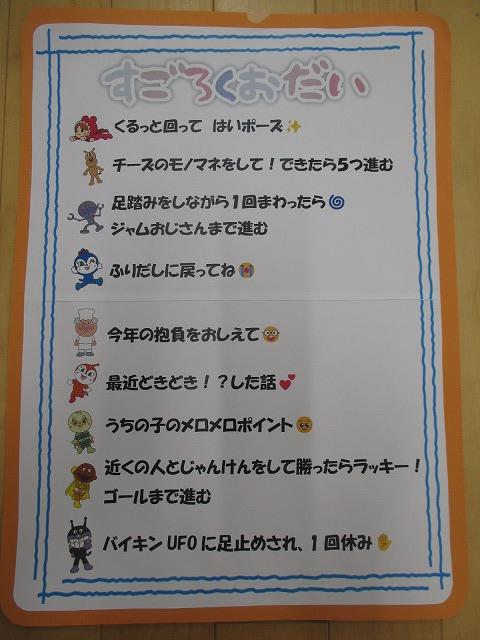 すごろくおだい
くるっと回って はいポーズ✨
チーズのモノマネをして！できたら5つ進む
足踏みをしながら1回まわったら🌀
ジャムおじさんまで進む
ふりだしに戻ってね😭
今年の抱負をおしえて🤓
最近どきどき！？した話💕
うちの子のメロメロポイント🥺
近くの人とじゃんけんをして勝ったらラッキー！
ゴールまで進む
バイキンUFOに足止めされ、1回休み✋